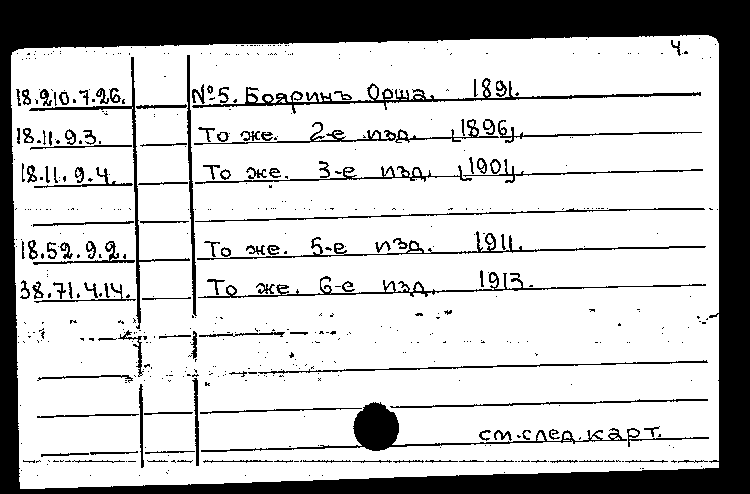 4.
18.210.7.26. №5. Бояринъ Орша. 1891.
18.11.9.3. То же. 2-е изд. [1896].
18.11.9.4. То же. 3-е изд. [1901].
18.52.9.2. То же. 5-е изд. 1911.
38.71.4.14. То же. 6-е изд. 1913.
см. след. карт.